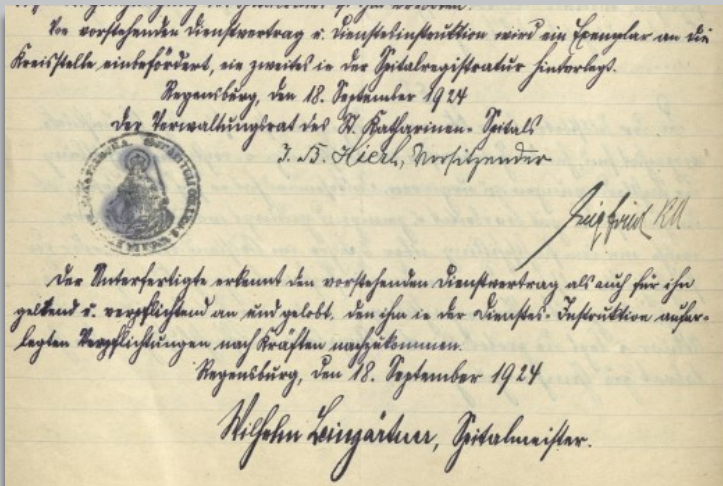 Von vorstehenden Dienstvertrag u. Dienstesinstruktion wird ein Exemplar an die
Kreisstelle einbefördert, ein zweites in der Spitalregistratur hinterlegt.
Regensburg, den 18. September 1924
Der Verwaltungsrat des St. Katharinen-Spitals
J. B. Hierl, Vorsitzender
Der Unterfertigte erkennt den vorstehenden Dienstvertrag als auch für ihn
geltend u. verpflichtend an und gelobt, den ihm in der Dienstes-Instruktion aufer-
legten Verpflichtungen nach Kräften nachzukommen.
Regensburg, den 18. September 1924
Wilhelm Weingärtner, Spitalmeister.